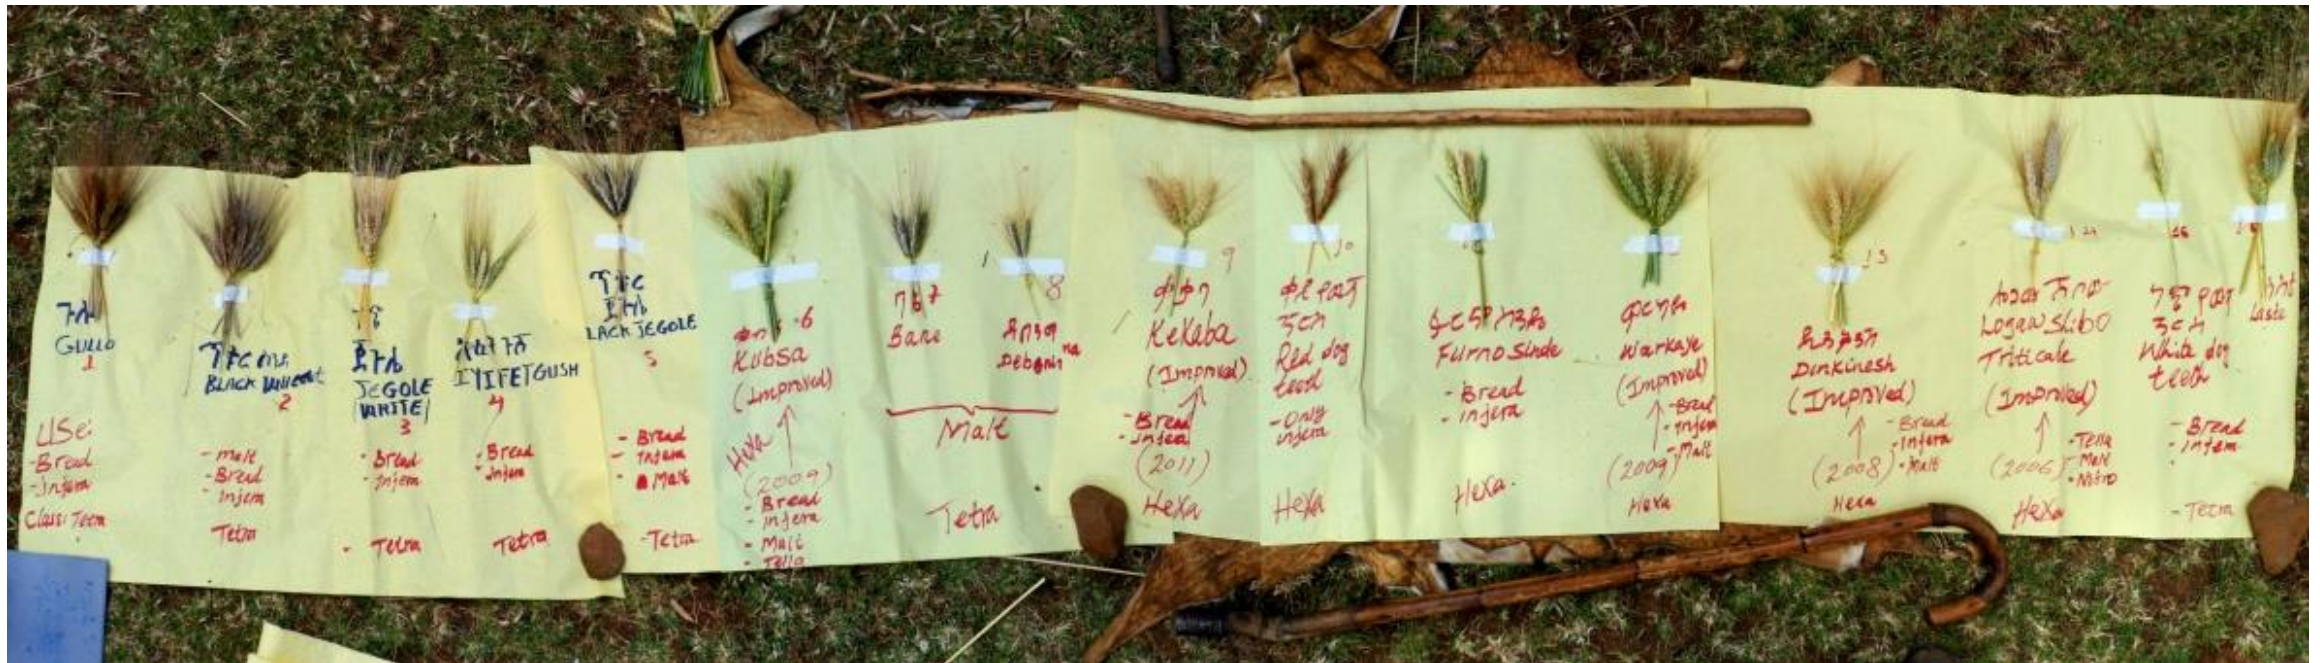 ጉሎ
GULLO
1
USe:
-Bread
-Injera
Class: Tetra
BLACK
2
- malt
- Bread
- Injera
Tetra
JEGOLE
(WHITE)
3
- Bread
- Injera
- Tetra
IYIFETGUSH
4
- Bread
- Injera
Tetra
ጥቁር
LACK JEGOLE
5
- Bread
- Injera
- Malt
-Tetra
6
Kubsa
(Improved)
Hexa
(2009)
- Bread
- injera
- Malt
- Tella
Bane
8
Malt
Tetra
9
ቀቀባ
Kekeba
(Improved)
-Bread
-injera
(2011)
Hexa
10
ቀይ የውሻ
ጥርስ
Red dog
-Only
injera
Hexa
ፉርኖ ስንዴ
Furno Sinde
- Bread
- injera
Hexa.
Warkaye
(Improved)
-Bread
-Injera
-Malt
(2009)
Hexa
13
ዲንቅነሽ
Dinkinesh
(Improved)
- Bread
-Injera
- Malt
(2008)
Hexa
ሎጋው ሽቦ
Logaw Shibo
Triticale
(Improved)
-Tella
- Malt
(2006)
Hexa
ነጭ የውሻ
ጥርስ
White dog
teeth
- Bread
- Injera
- Tetra
Laste